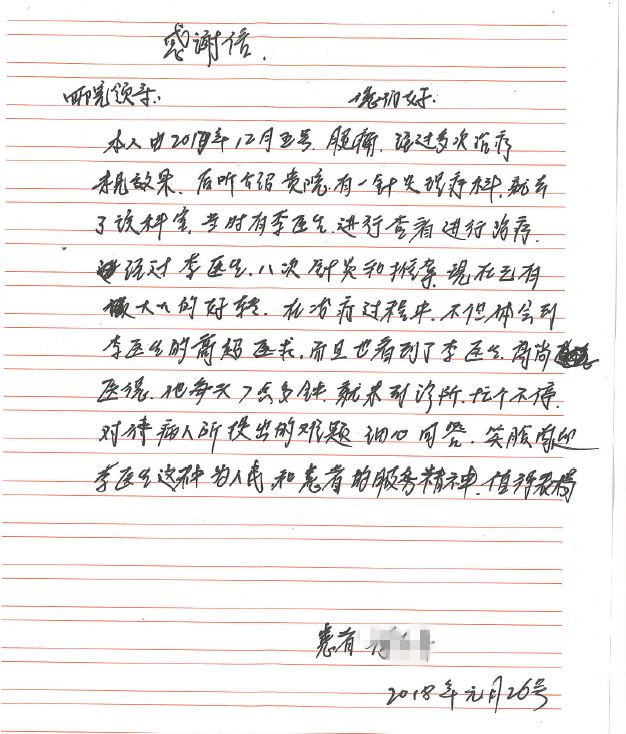 感谢信.
医院领导: 您们好:
本人由2017年12月五号.腿痛.经过多次治疗
未见效果.后听介绍贵院.有一针灸理疗科.就去
了该科室.当时有李医生.进行查看进行治疗.
经过李医生.八次针灸和推拿.现在已有
很大大的好转.在治疗过程中.不但体会到
李医生的高超医术.而且也看到了李医生.高尚
医德.他每天7点多钟.就来到诊所.忙个不停.
对待病人所提出的难题 细心回答.笑脸肉迎
李医生这种为人民.和患者的服务精神.值得表扬
患者
2018年元月26号